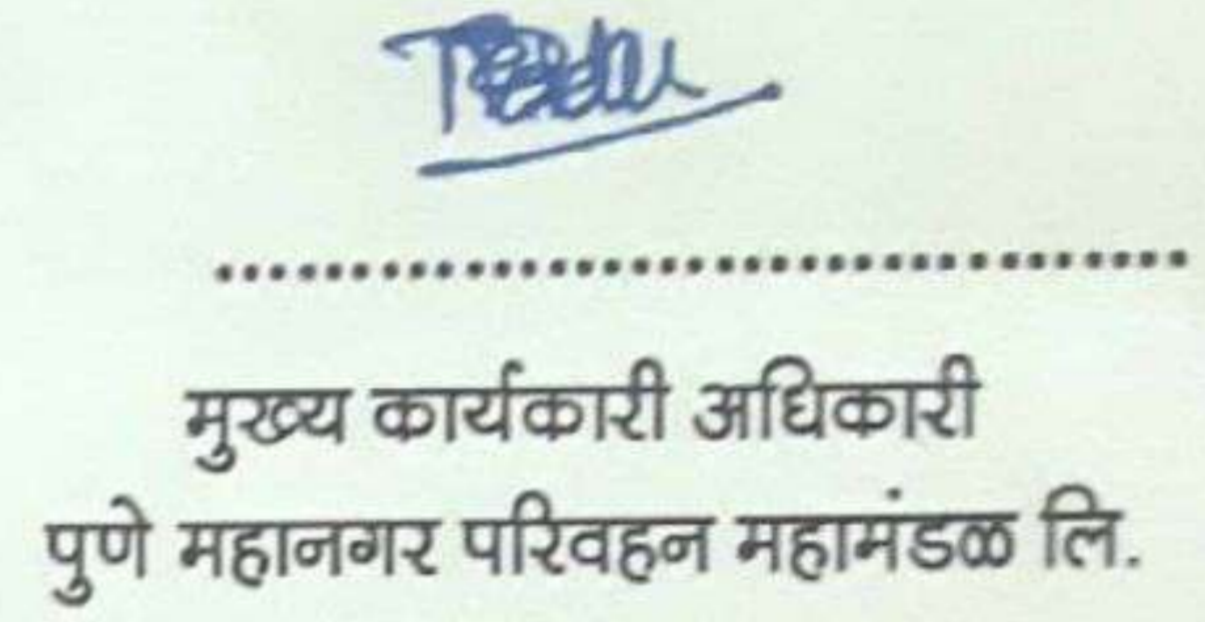 मुख्य कार्यकारी अधिकारी
पुणे महानगर परिवहन महामंडळ लि.